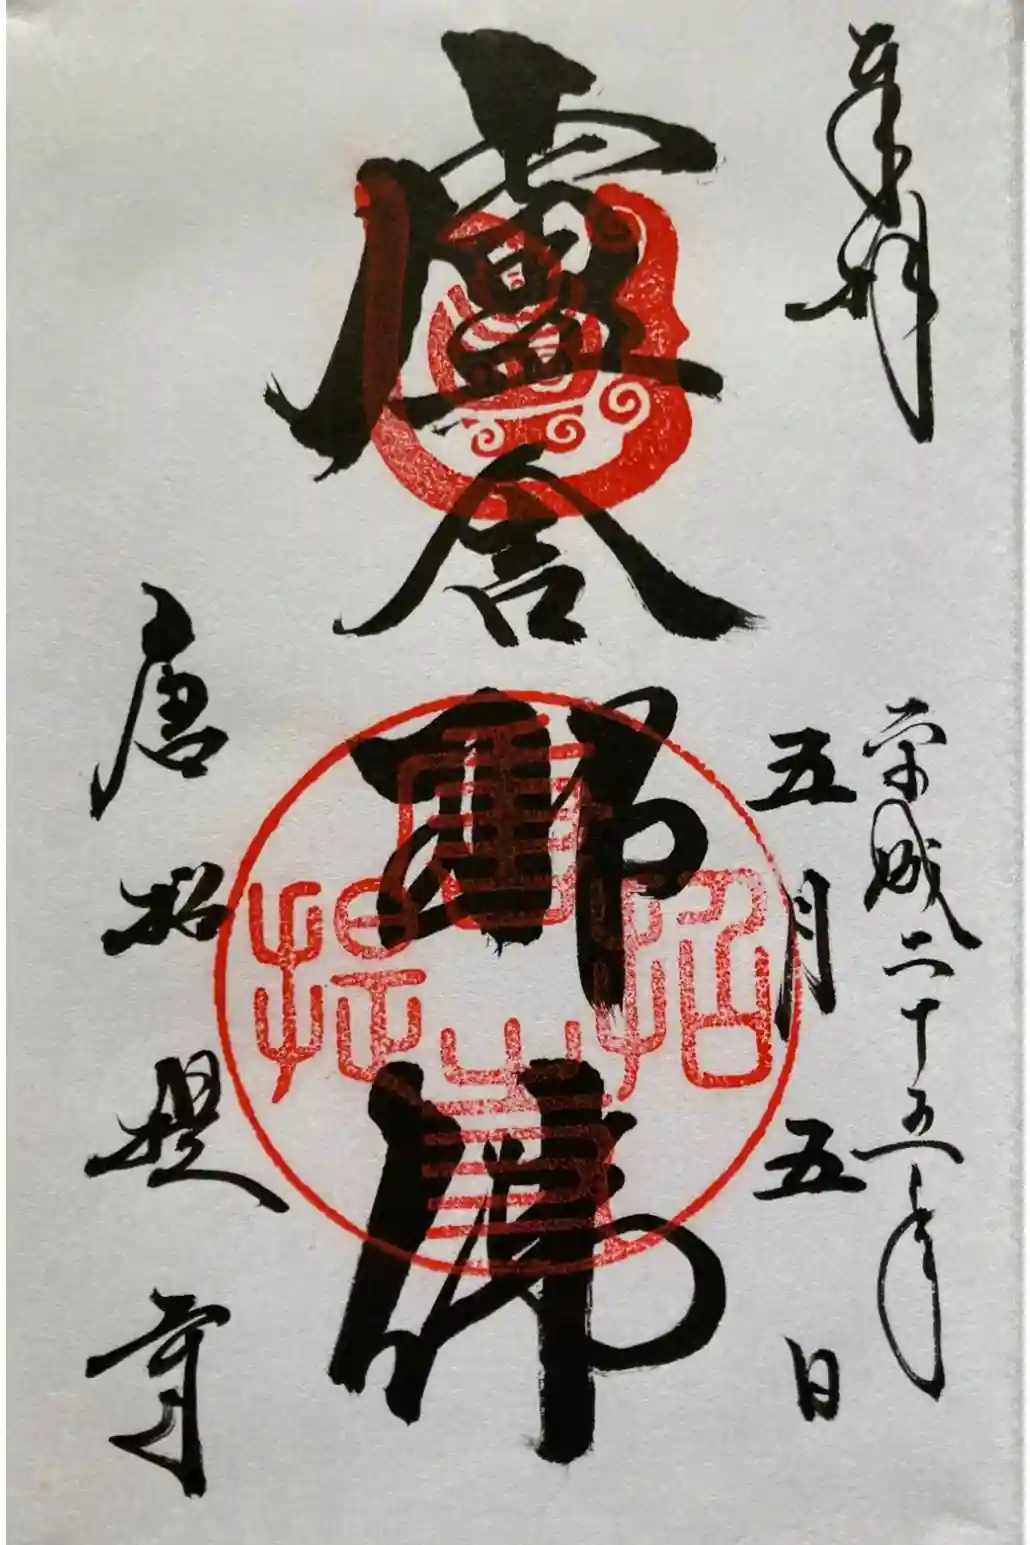 奉拝
平成二十五年
五月五日
盧舎那佛
唐招提寺
唐招提寺